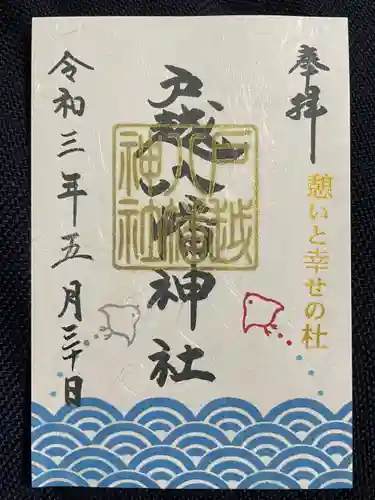 奉拝
憩いと幸せの杜
戸越八幡神社
戸越八幡神社
令和三年五月三十日